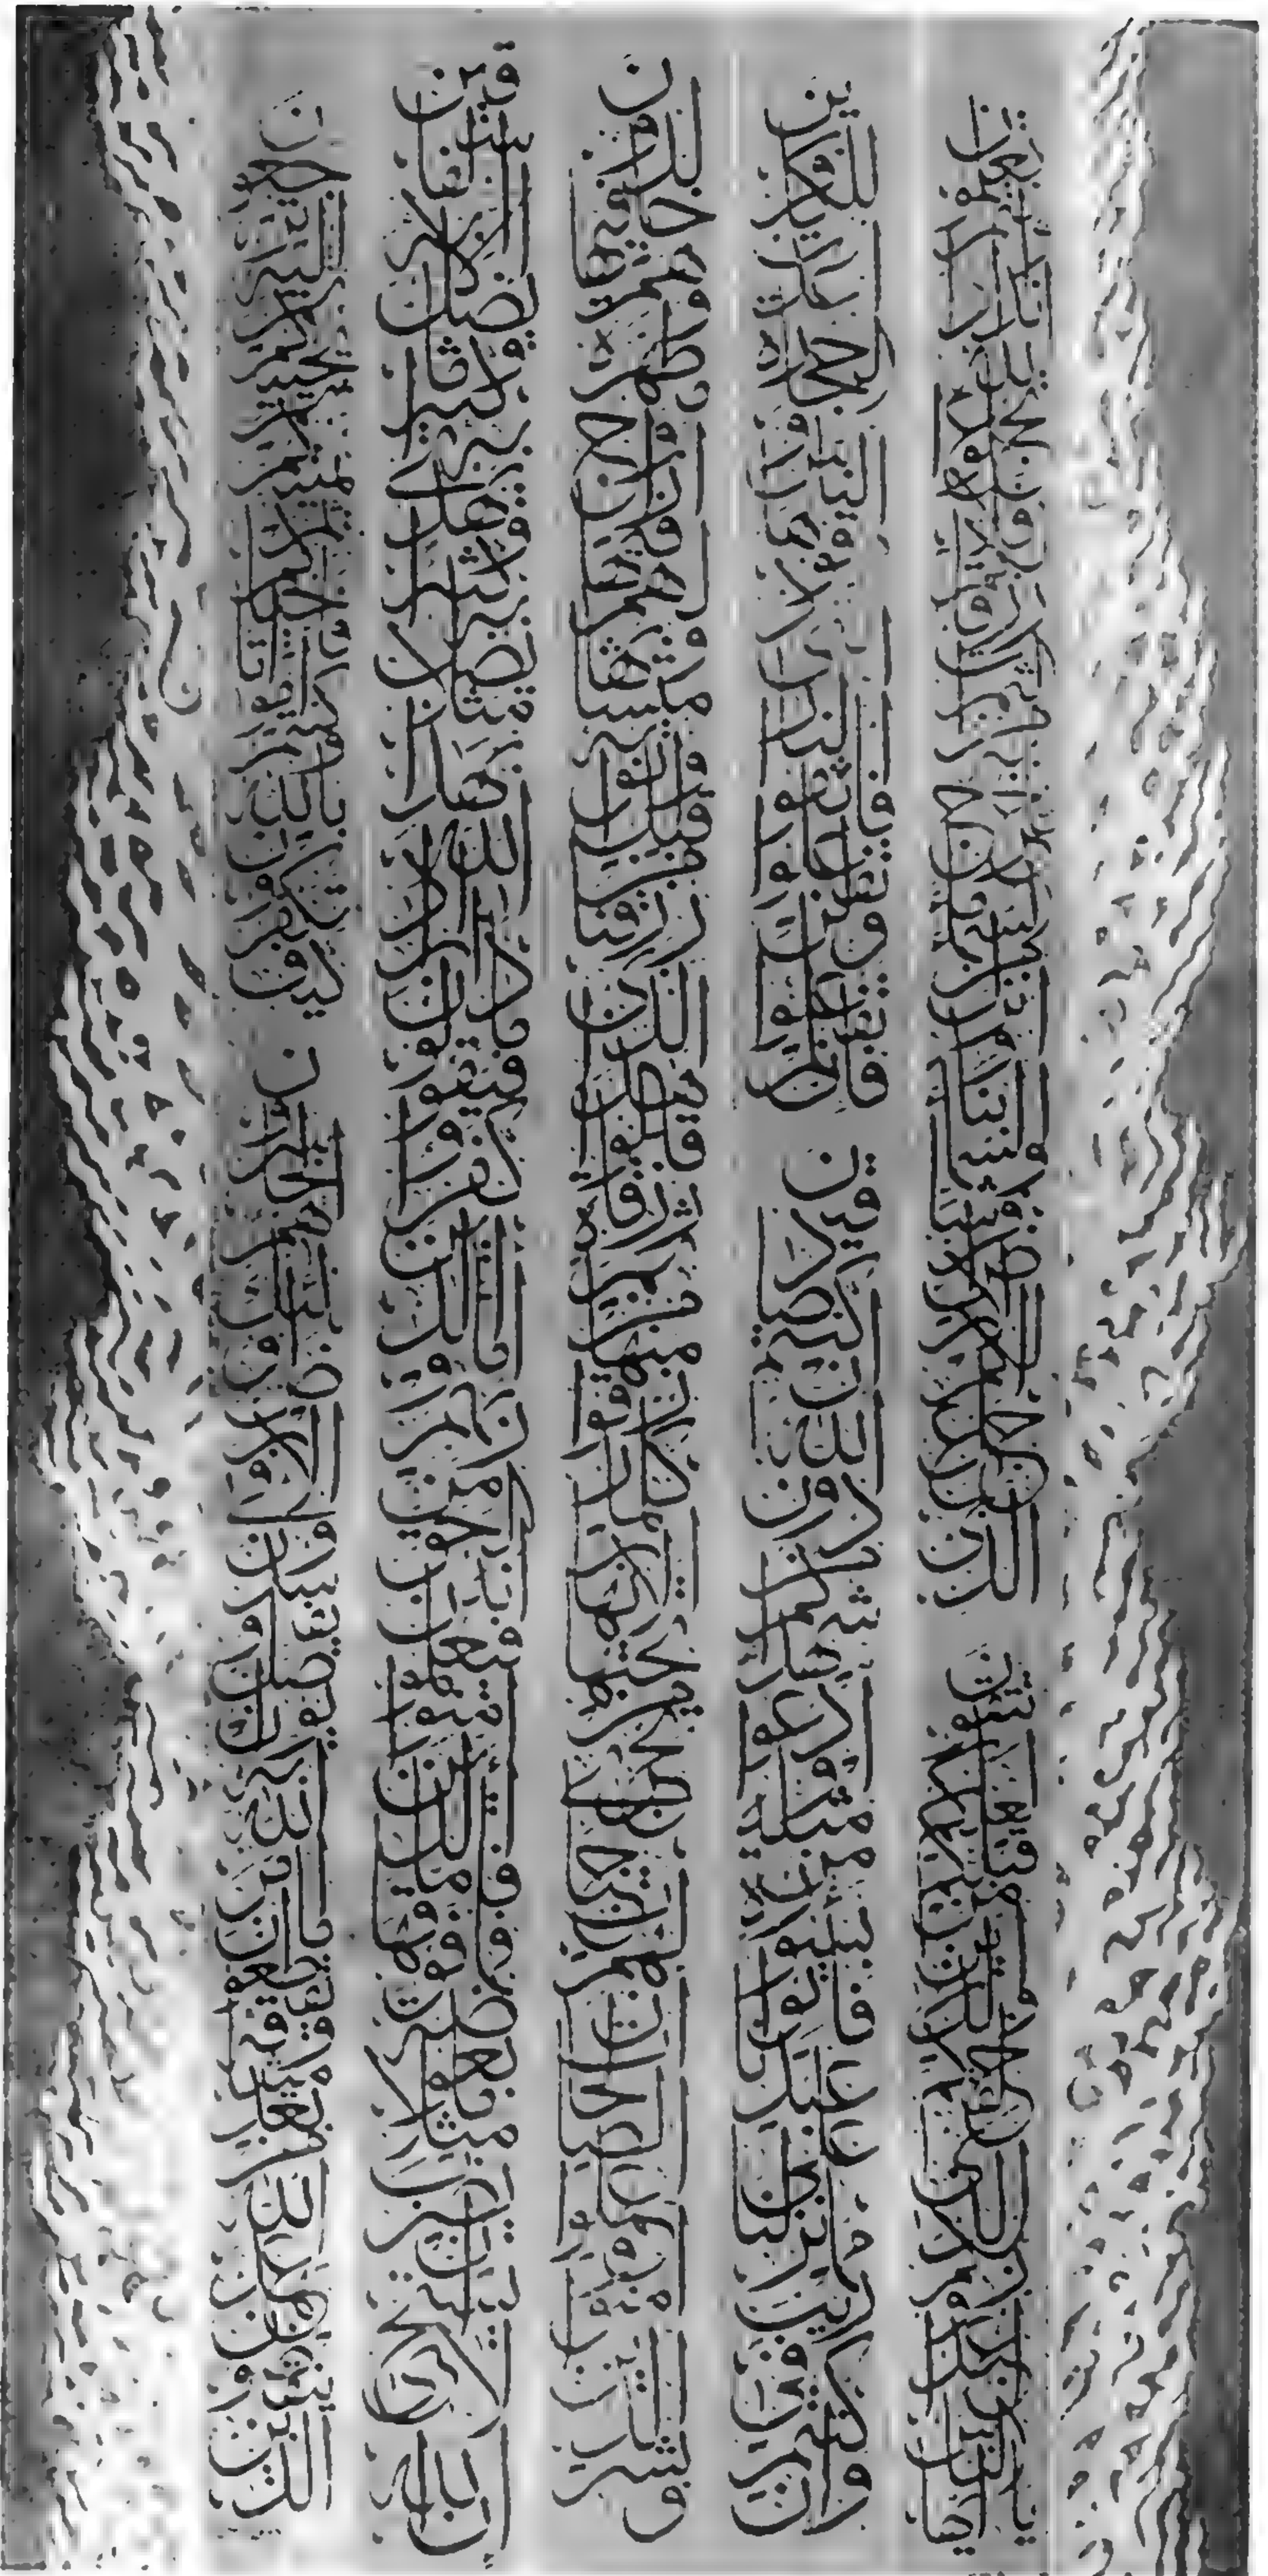 يا ايها الناس اعبدوا ربكم الذي خلقكم والذين من قبلكم لعلكم تتقون الذي جعل لكم الارض فراشا والسماء بناء وانزل من السماء ماء فاخرج به من الثمرات رزقا لكم فلا تجعلوا لله اندادا وانتم تعلمون
وان كنتم في ريب مما نزلنا على عبدنا فاتوا بسورة من مثله وادعوا شهداءكم من دون الله ان كنتم صادقين فان لم تفعلوا ولن تفعلوا فاتقوا النار التي وقودها الناس والحجارة اعدت للكافرين
وبشر الذين امنوا وعملوا الصالحات ان لهم جنات تجري من تحتها الانهار كلما رزقوا منها من ثمرة رزقا قالوا هذا الذي رزقنا من قبل واتوا به متشابها ولهم فيها ازواج مطهرة وهم فيها خالدون
ان الله لا يستحيي ان يضرب مثلا ما بعوضة فما فوقها فاما الذين امنوا فيعلمون انه الحق من ربهم واما الذين كفروا فيقولون ماذا اراد الله بهذا مثلا يضل به كثيرا ويهدي به كثيرا وما يضل به الا الفاسقين
الذين ينقضون عهد الله من بعد ميثاقه ويقطعون ما امر الله به ان يوصل ويفسدون في الارض اولئك هم الخاسرون كيف تكفرون بالله وكنتم امواتا فاحياكم ثم يميتكم ثم يحييكم ثم اليه ترجعون